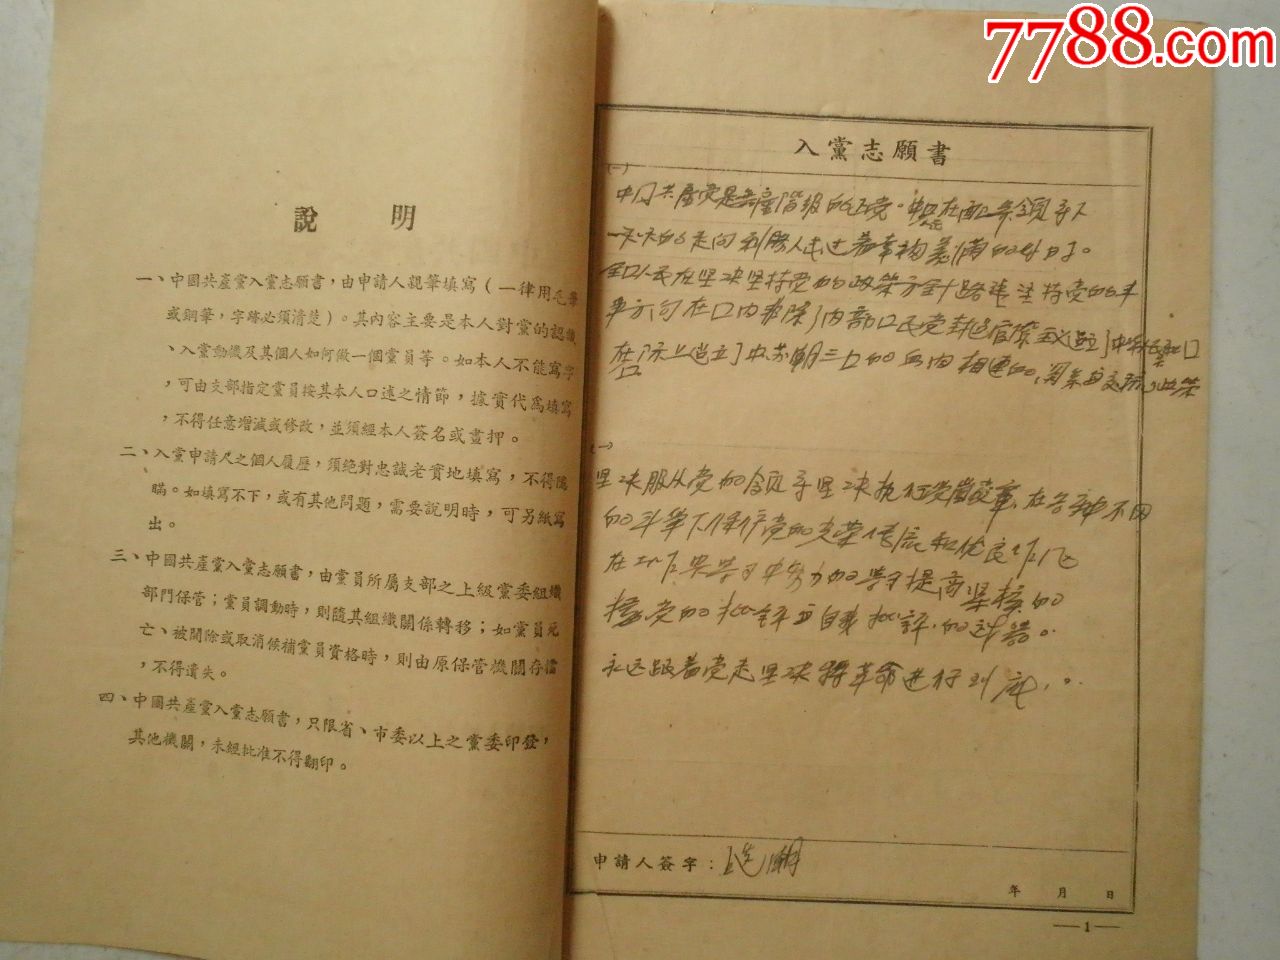 7788.com
說 明
一、中國共產黨入黨志願書，由申請人親筆填寫（一律用毛筆
或鋼筆，字跡必須清楚）。其內容主要是本人對黨的認識
、入黨動機及其個人如何做一個黨員等。如本人不能寫字
，可由支部指定黨員按其本人口述之情節，據實代為填寫
，不得任意增減或修改，並須經本人簽名或畫押。
二、入黨申請人之個人履歷，須絕對忠誠老實地填寫，不得隱
瞞。如填寫不下，或有其他問題，需要說明時，可另紙寫
出。
三、中國共產黨入黨志願書，由黨員所屬支部之上級黨委組織
部門保管；黨員調動時，則隨其組織關係轉移；如黨員死
亡、被開除或取消候補黨員資格時，則由原保管機關存檔
，不得遺失。
四、中國共產黨入黨志願書，只限省、市委以上之黨委印發，
其他機關，未經批准不得翻印。
入黨志願書
(一)
中国共產党是無產階級的政党。在領导下
的走向利勝人民过着幸福美滿的
全口人民在坚决坚持党的政策方針路綫坚持党的
方向在口内肃除了内部口民党
在口际上造立了中苏朝三口的血肉相連的
坚决服从党的領导坚决执行党在各种不同
的斗争下保存党的光荣傳統和优良作风
在工作与学习中努力的学习提高
党的批評与自我批評的武器。
永远跟着党走坚决将革命進行到底。
申請人簽字：
年 月 日
—1—